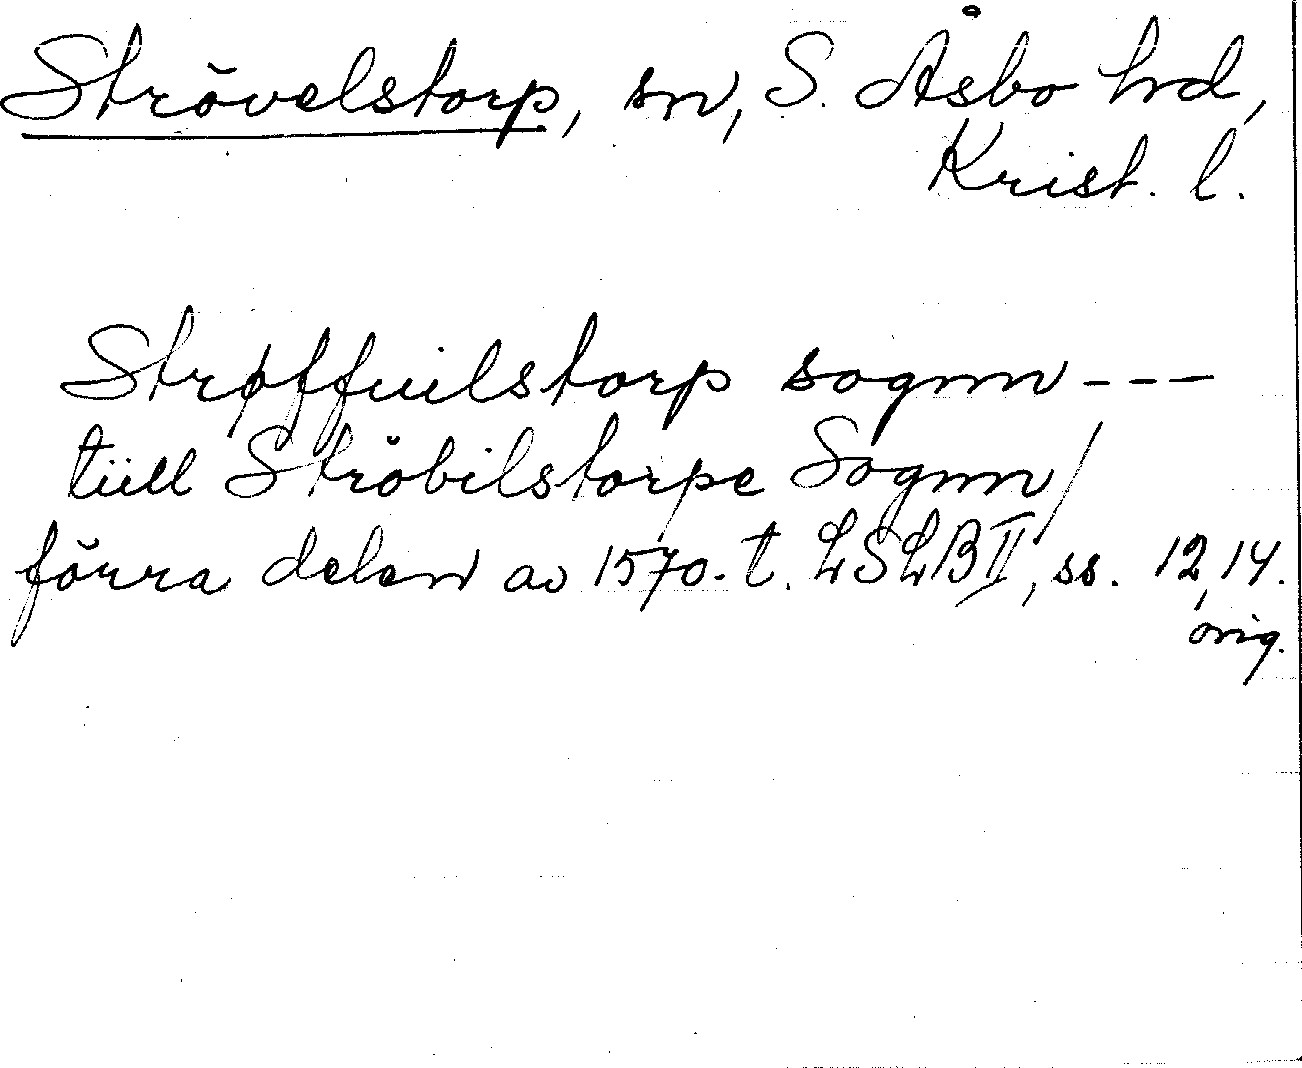 Strövelstorp, sn, S. Åsbo hrd,
Krist. l.
Strøffuilstorp sognn ---
tiill Ströbilstorpe Sognn /
förra delen av 1570-t. LSLB II, ss. 12, 14.
orig.